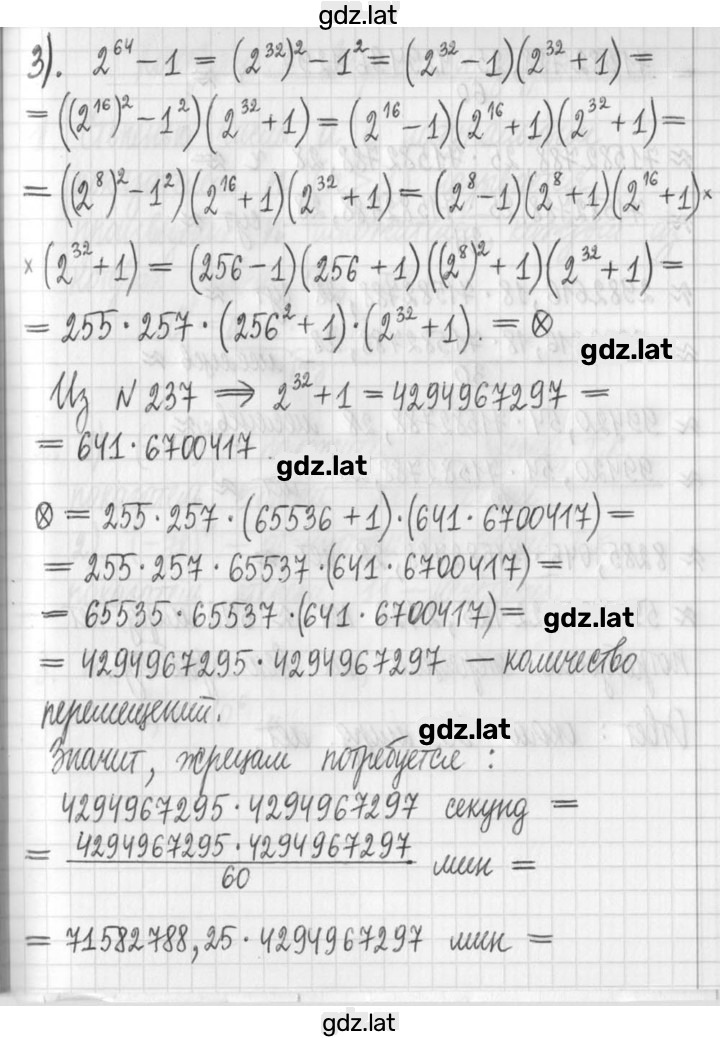 gdz.lat
3). 2^64 − 1 = (2^32)^2 − 1^2 = (2^32 − 1)(2^32 + 1) =
= ((2^16)^2 − 1^2)(2^32 + 1) = (2^16 − 1)(2^16 + 1)(2^32 + 1) =
= ((2^8)^2 − 1^2)(2^16 + 1)(2^32 + 1) = (2^8 − 1)(2^8 + 1)(2^16 + 1)×
× (2^32 + 1) = (256 − 1)(256 + 1)((2^8)^2 + 1)(2^32 + 1) =
= 255 · 257 · (256^2 + 1) · (2^32 + 1). = ⊗
gdz.lat
Из № 237 ⟹ 2^32 + 1 = 4294967297 =
= 641 · 6700417
gdz.lat
⊗ = 255 · 257 · (65536 + 1) · (641 · 6700417) =
= 255 · 257 · 65537 · (641 · 6700417) =
= 65535 · 65537 · (641 · 6700417) =
gdz.lat
= 4294967295 · 4294967297 — количество
перемещений.
gdz.lat
Значит, жрецам потребуется :
4294967295 · 4294967297 секунд =
= 4294967295 · 4294967297 / 60 мин =
= 71582788,25 · 4294967297 мин =
gdz.lat